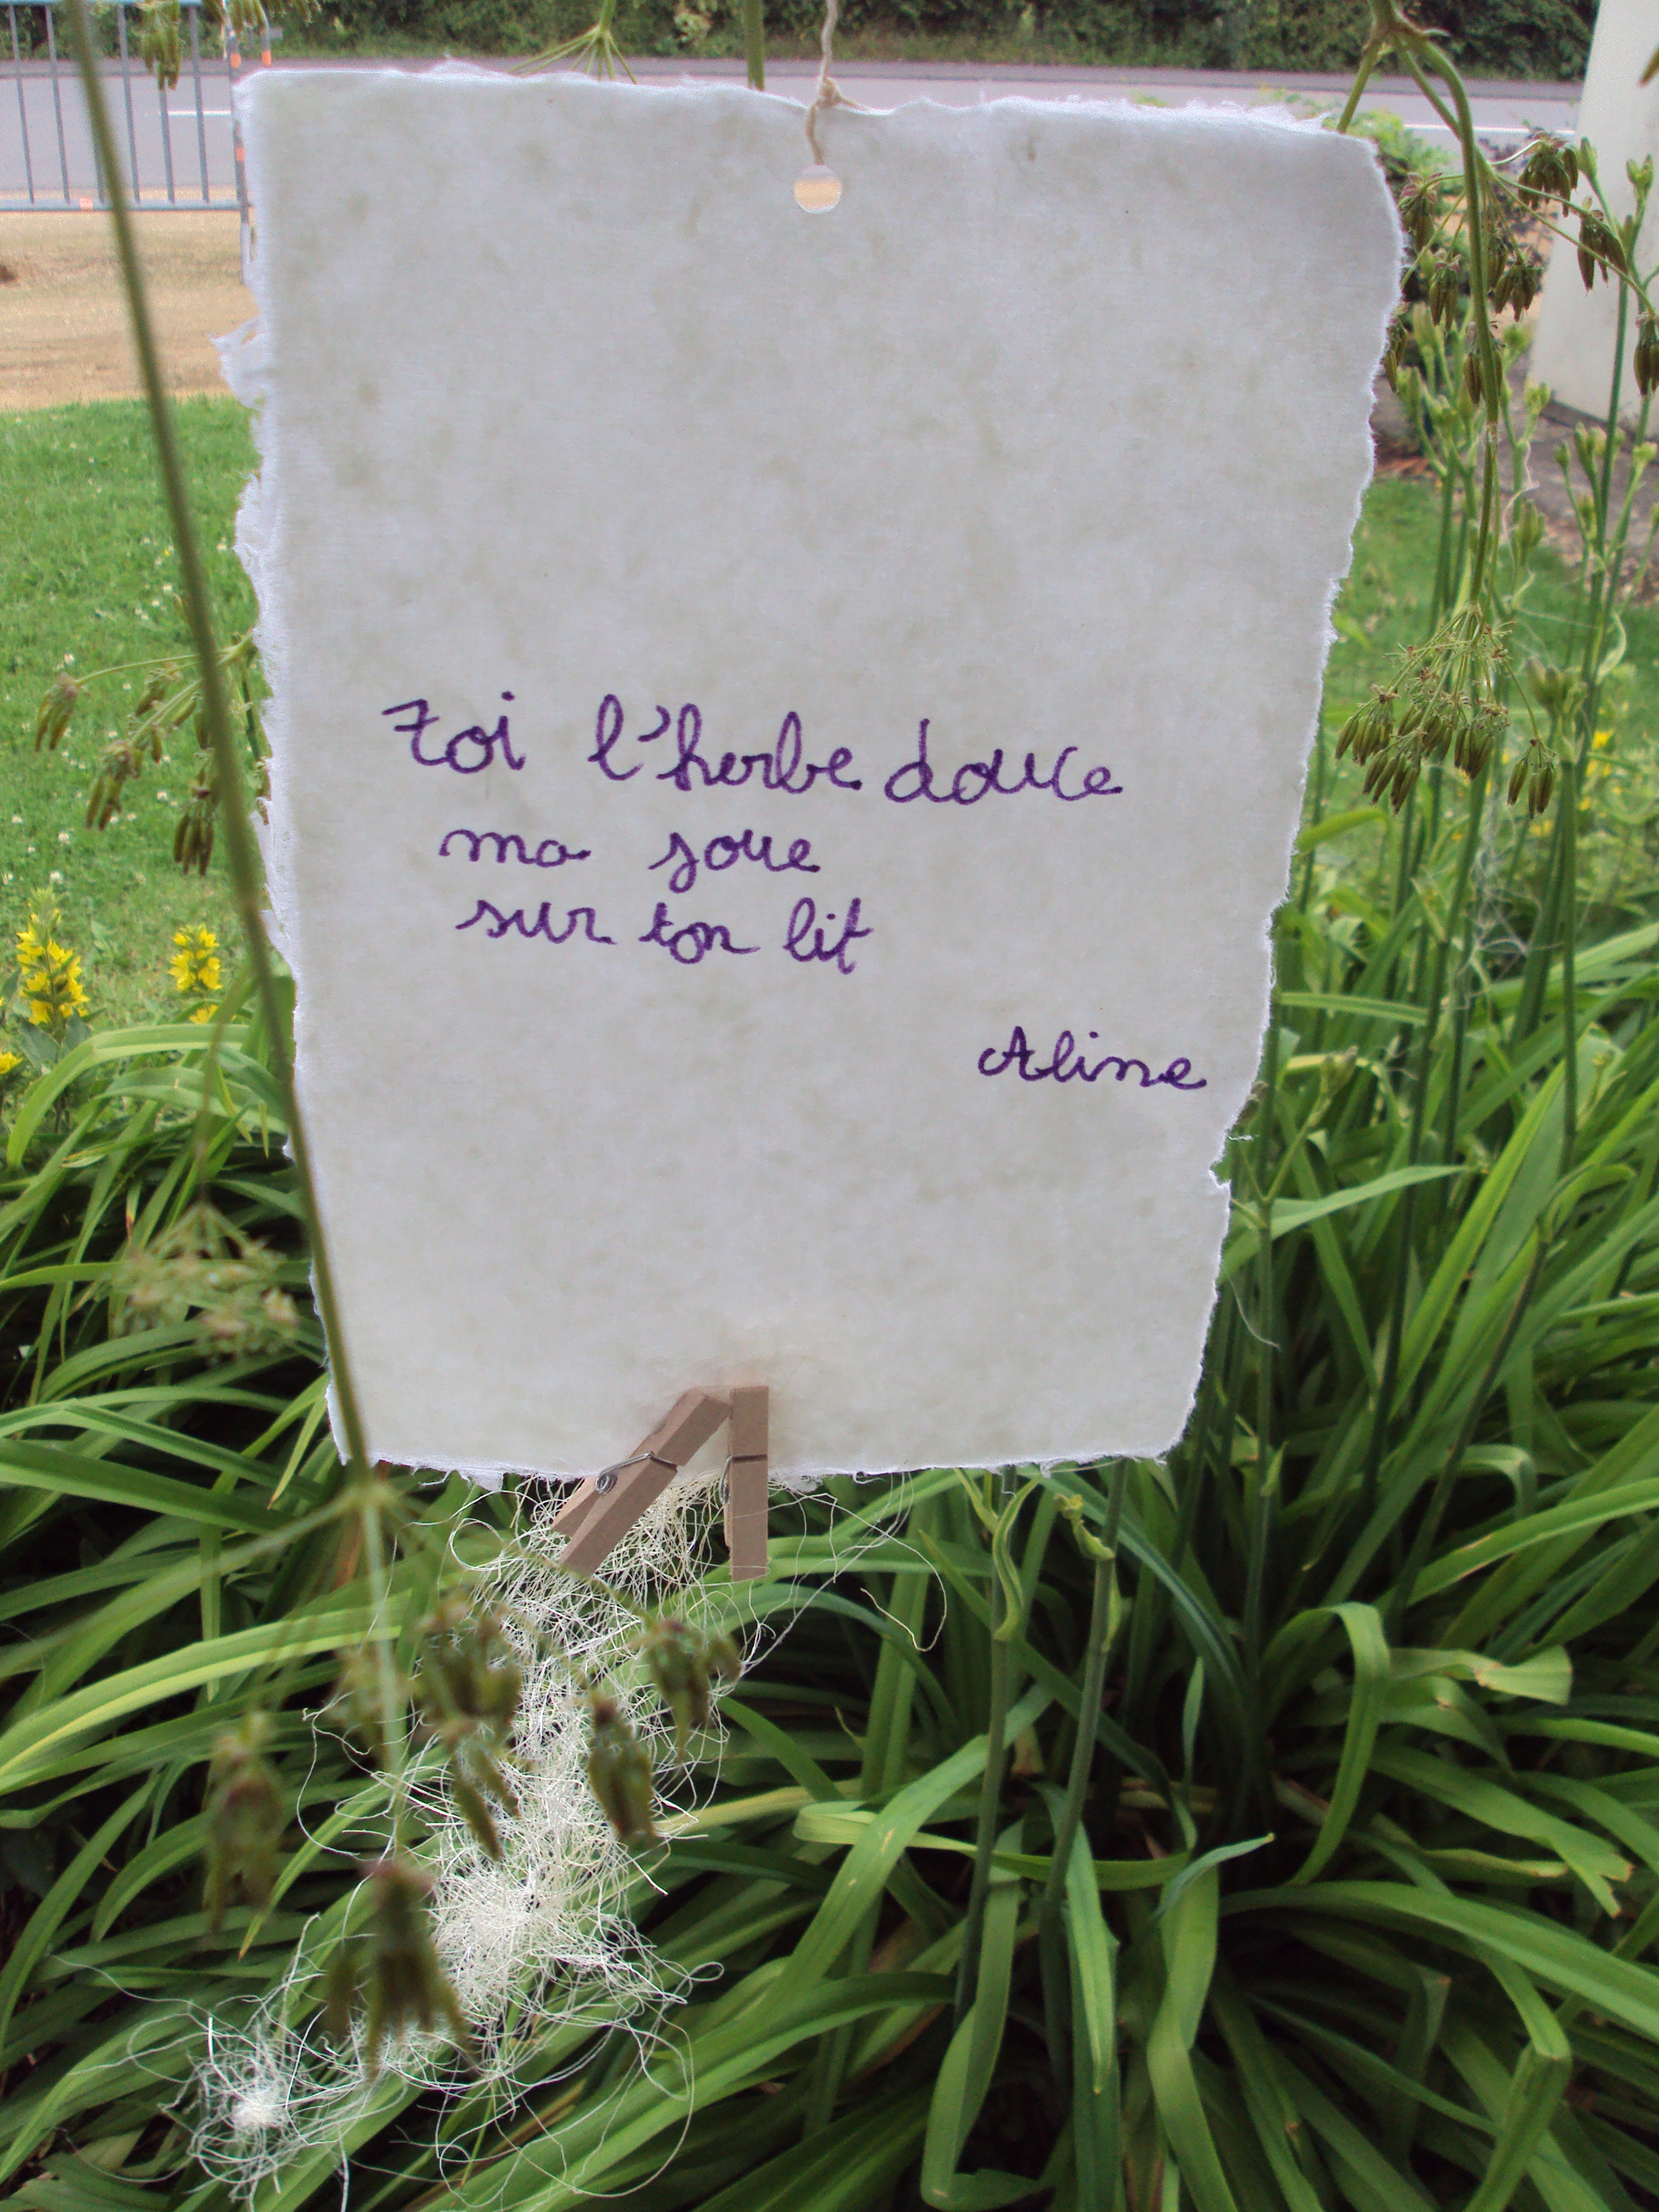 Toi l'herbe douce
ma joue
sur ton lit
Aline